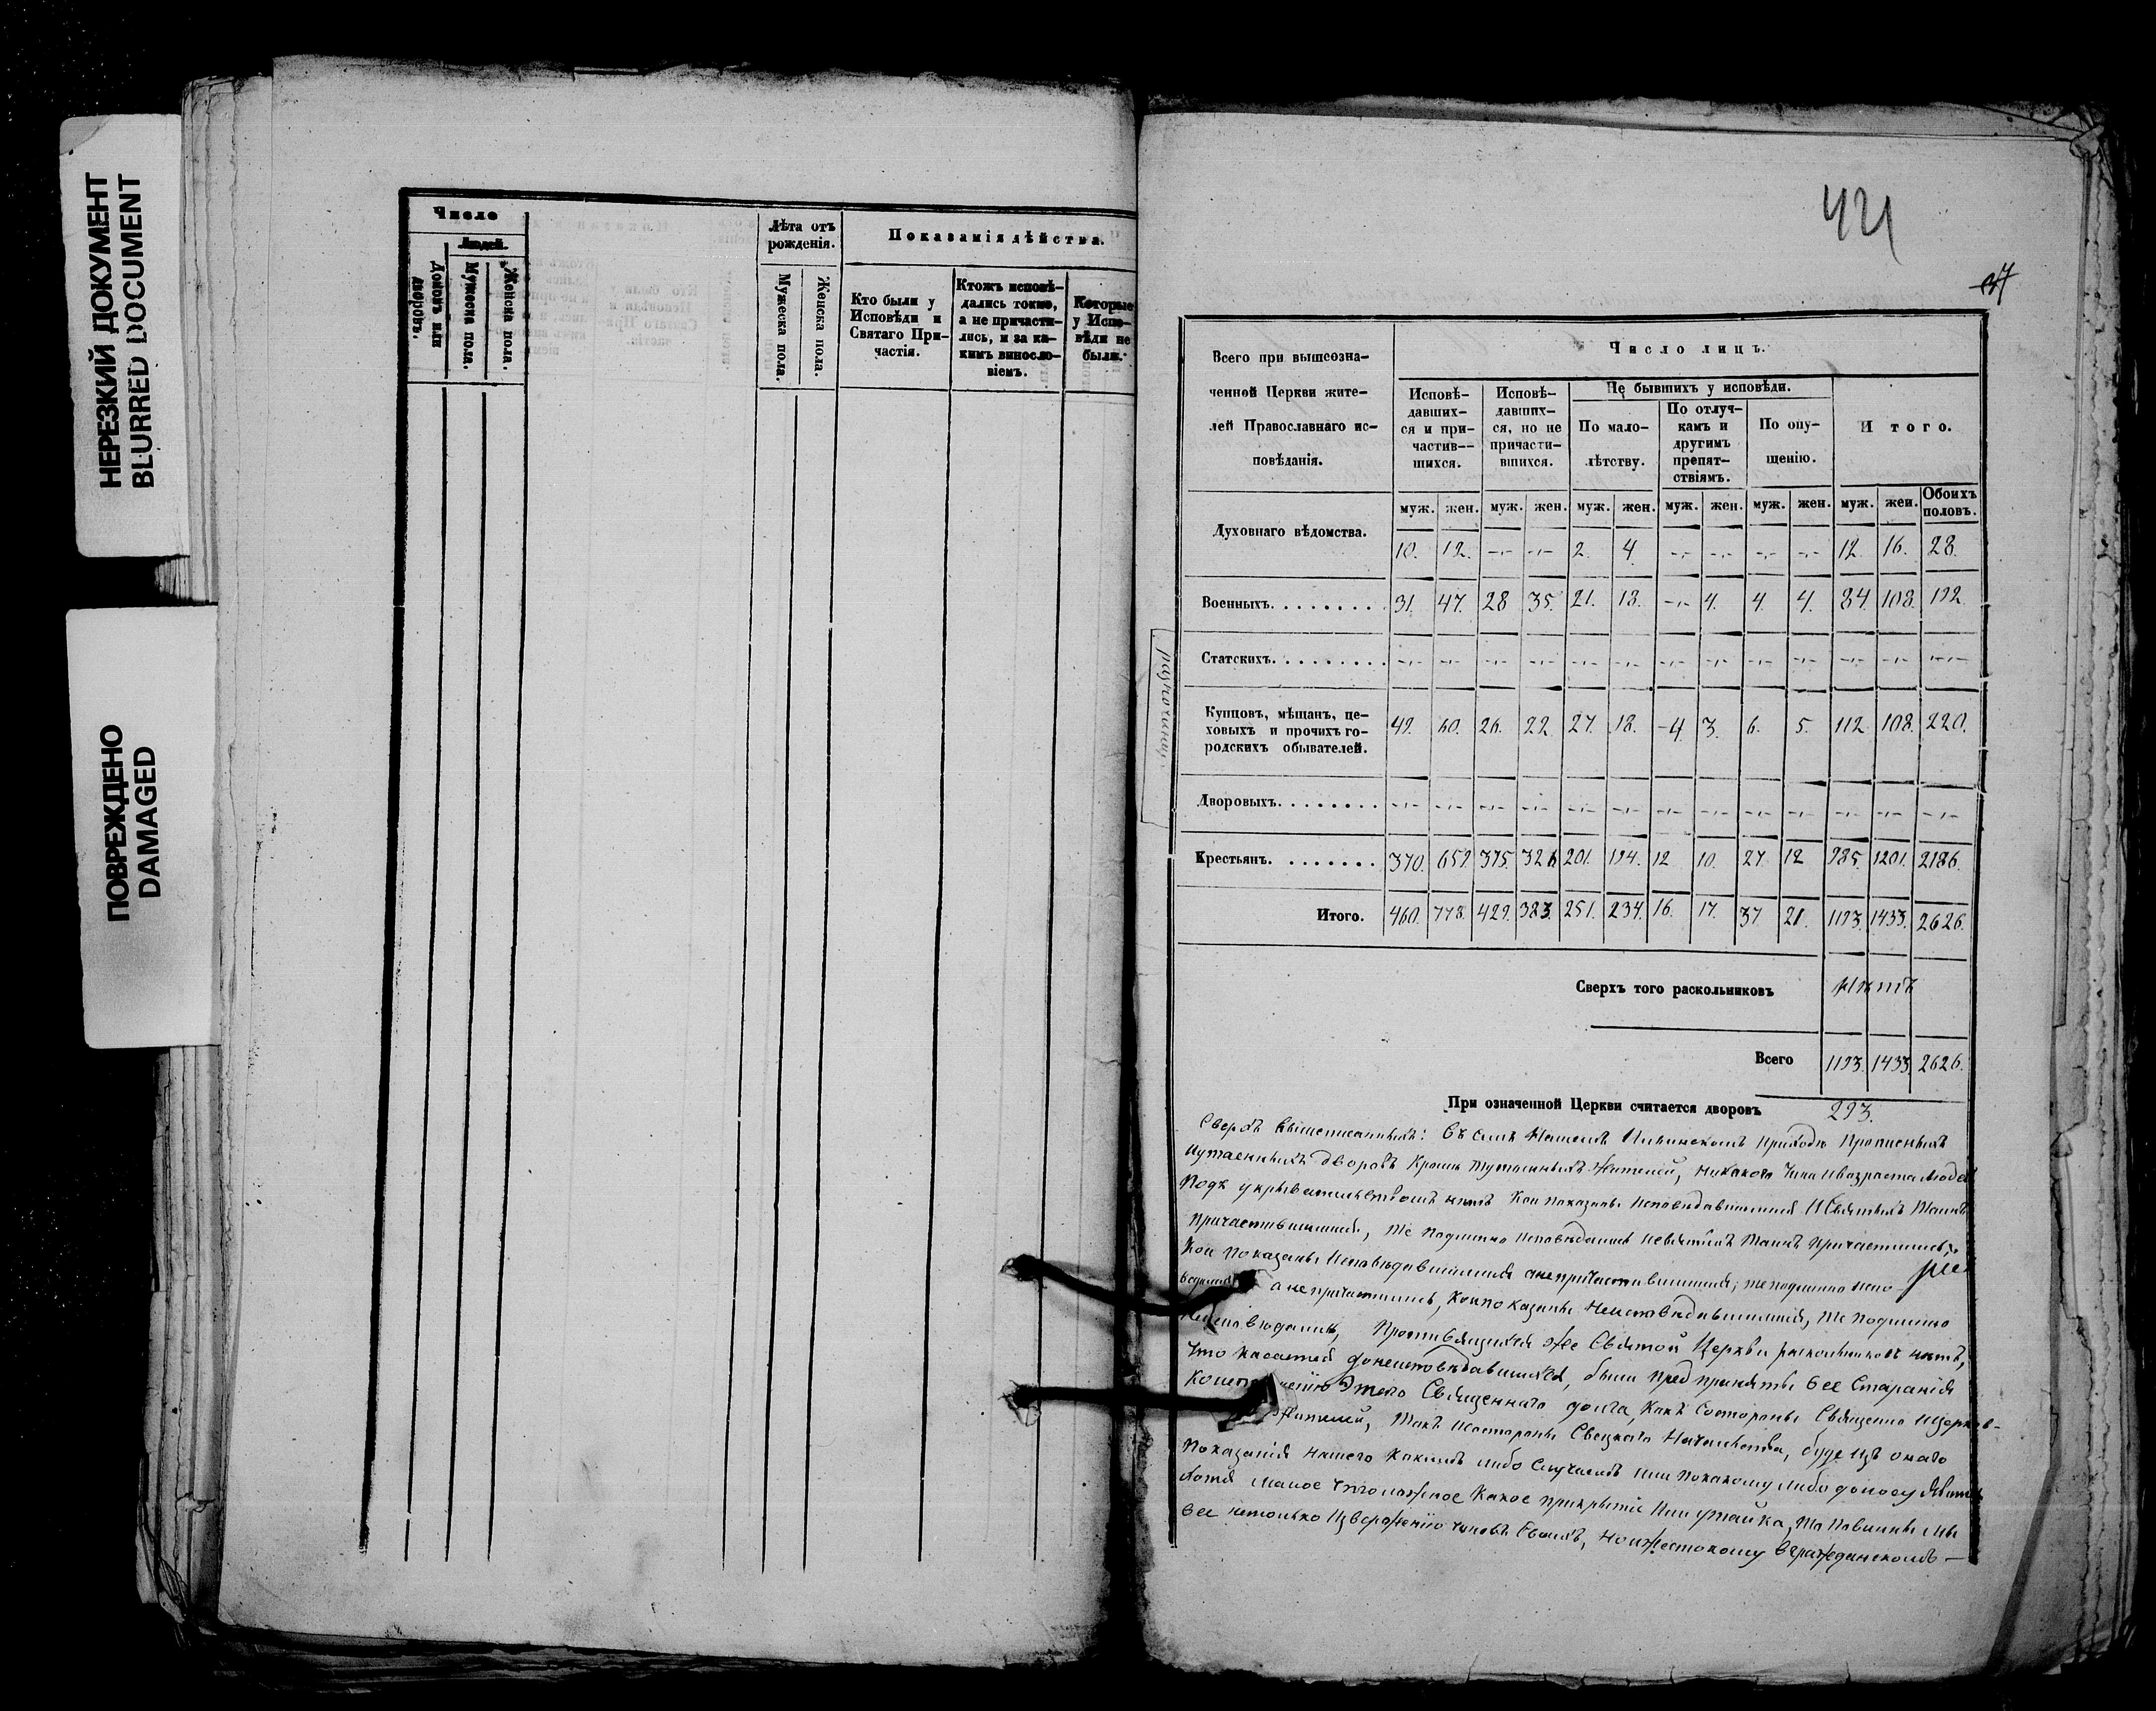 НЕРЕЗКИЙ ДОКУМЕНТ
BLURRED DOCUMENT
ПОВРЕЖДЕНО
DAMAGED
Число
Людей.
Домовъ или дворовъ.
Мужеска пола.
Женска пола.
Лѣта отъ рожденія.
Мужеска пола.
Женска пола.
Показанія дѣйства.
Кто были у Исповѣди и Святаго При-
частія.
Ктожъ исповѣ-
дались токмо,
а не причасти-
лись, и за ка-
кимъ винословіемъ.
Которые
у Испо-
вѣди не
были.
421
37
Всего при вышеозна-
ченной Церкви жите-
лей Православнаго ис-
повѣданія.
Число лицъ.
Исповѣ-
давших-
ся и при-
частив-
шихся.
Исповѣ-
давших-
ся, но не
причасти-
вшихся.
Не бывшихъ у исповѣди.
По мало-
лѣтству.
По отлуч-
камъ и
другимъ
препят-
ствіямъ.
По опу-
щенію.
Итого.
муж. жен. муж. жен. муж. жен. муж. жен. муж. жен. муж. жен. Обоихъ половъ.
Духовнаго вѣдомства. 10. 12. -.- -.- 2. 4 -.- -.- -.- -.- 12. 16. 28.
Военныхъ. 31. 47. 28 35. 21. 18. -.- 4. 4. 4. 84. 108. 192
Статскихъ. -.- -.- -.- -.- -.- -.- -.- -.- -.- -.- -.- -.- -.-
Купцовъ, мѣщанъ, це-
ховыхъ и прочихъ го-
родскихъ обывателей. 49. 60. 26. 22. 27. 18. 4 3. 6. 5. 112. 108. 220.
Дворовыхъ. -.- -.- -.- -.- -.- -.- -.- -.- -.- -.- -.- -.- -.-
Крестьянъ. 370. 659. 375. 326 201. 194. 12 10. 27. 12 985. 1201. 2186.
Итого. 460. 778. 429. 383. 251. 234. 16. 17. 37 21. 1193. 1433. 2626.
Сверхъ того раскольниковъ нѣтъ
Всего 1193. 1433. 2626.
При означенной Церкви считается дворовъ 293.
Сверхъ вышеписанныхъ: въ семъ нашемъ приходѣ прописныхъ
и утаенныхъ дворовъ кромѣ жителей, никакого чина и возраста людей
подъ укрывательствомъ нѣтъ кои показаны исповѣдавшимися и Святыхъ Таинъ
причастившимися, те подлинно исповѣдались и Святыхъ Таинъ причастились;
кои показаны исповѣдавшимися а не причастившимися; те подлинно испо
а не причастились, кои показаны неисповѣдавшимися, те подлинно
неисповѣдались, Противящихся же Святой Церкви раскольниковъ нѣтъ,
что касается до неисповѣдавшихся, были предприняты все старанія
этого Священнаго долга, какъ со стороны Священно и церков-
Служителей, такъ и со стороны Свецкаго Начальства, буде изъ онаго
показанія нашего какимъ либо случаемъ или по какому либо доносу явится
хотя малое что ложное какое прикрытіе или утайка, то повинны мы
все не только изверженію чиновъ своихъ, но и жестокому въ гражданскомъ —